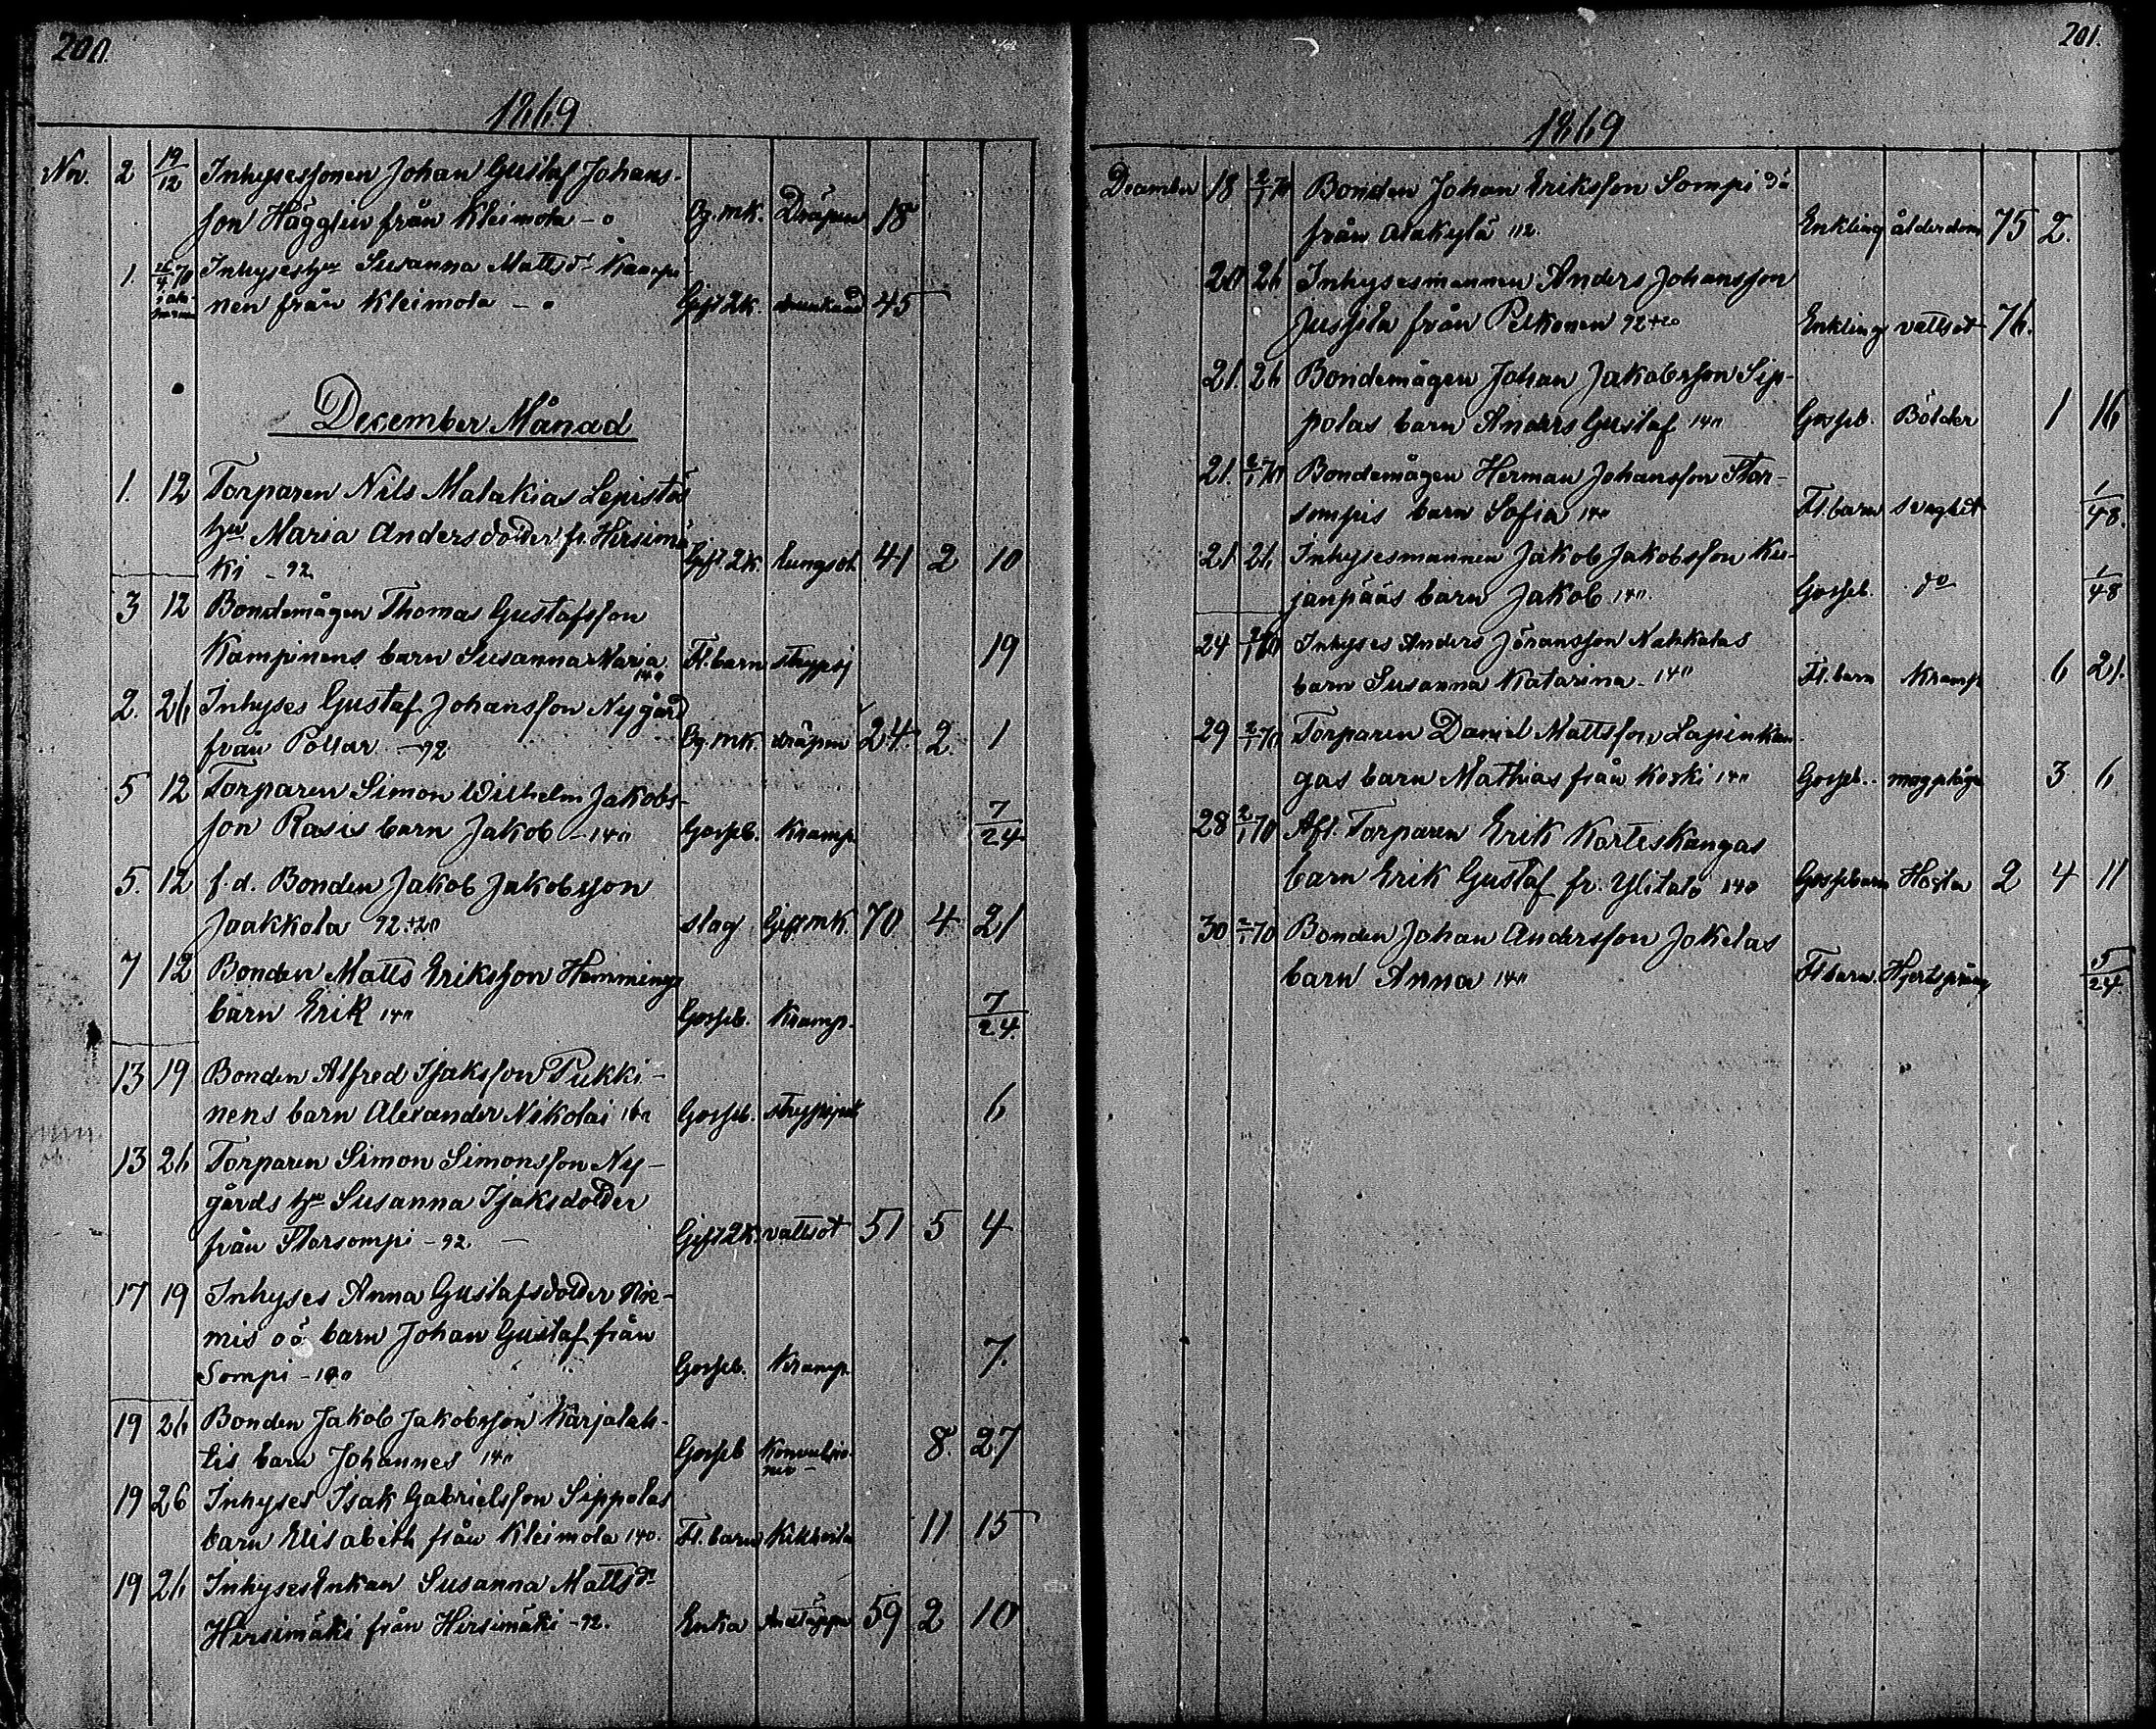 200.
1869
Nov. 2 19/12 Inhysessonen Johan Gustaf Johans-
son Hägglin från Kleimola - o Og. mk. Dräpen 18
1. 26/4 70 Inhyseshu Susanna Mattsdr Kampi-
nen från Kleimola - o Gift 2k. drunknad 45
December Månad
1. 12 Torparen Nils Malakias Lepistös
hu Maria Andersdotter fr Hirsimä
ki - 92. Gift 2k. Lungsot 41 2 10
3 12 Bondemågen Thomas Gustafsson
Kampinens barn Susanna Maria 140 Fl. barn strypsj 19
2. 26 Inhyses Gustaf Johansson Nygård
från Pollar - 92 Og. mk dräpen 24. 2 1
5 12 Torparen Simon Wilhelm Jakobs-
son Rasis barn Jakob - 140 Gosseb. Kramp 7/24
5. 12 f.d. Bonden Jakob Jakobsson
Jaakkola 92+20 slag Gift mk. 70 4 21
7 12 Bonden Matts Eriksson Hemmings
barn Erik 140 Gosseb. Kramp. 7/24.
13 19 Bonden Alfred Isaksson Pukki-
nens barn Alexander Nikolai 140 Gosseb. strypsjuk 6
13 26 Torparen Simon Simonsson Ny-
gårds hu Susanna Isaksdotter
från Storsompi - 92. - Gift 2k. vattsot 51 5 4
17 19 Inhyses Anna Gustafsdotter Nie-
mis oä barn Johan Gustaf från
Sompi - 140 Gosseb. Kramp 7.
19 26 Bonden Jakob Jakobsson Karjalah-
tis barn Johannes 140 Gosseb Konvulsio-
ner - 8. 27
19 26 Inhyses Isak Gabrielsson Sippolas
barn Elisabeth från Kleimola 140. Fl. barn Kikhosta 11 15
19 26 Inhysesenkan Susanna Mattsdr
Hirsimäki från Hirsimäki - 92. Enka Andtäppa 59 2 10
201.
1869
December 18 2/1 70 Bonden Johan Eriksson Sompi
från Alakylä 112. Enkling ålderdom 75 2.
20 26 Inhysesmannen Anders Johansson
Jussila från Pelkonen 92+20 Enkling vattsot 76.
21. 26 Bondemågen Johan Jakobsson Sip-
polas barn Anders Gustaf 140 Gosseb. Bölder 1 16
21. 2/1 70 Bondemågen Herman Johansson Stor-
sompis barn Sofia 140 Fl. barn svaghet 1/48.
21 26 Inhysesmannen Jakob Jakobsson Ku-
janpääs barn Jakob 140. Gosseb. do 1/48
24 2/1 70 Inhyses Anders Jöransson Nahkalas
barn Susanna Katarina - 140 Fl. barn Kramp 6 21.
29 2/1 70 Torparen Daniel Mattsson Lapinkan
gas barn Mathias från Koski 140 Gosseb. magplåga 3 6
28 2/1 70 Afl. Torparen Erik Korteskangas
barn Erik Gustaf fr. Ylitalo 140 Gossebarn Hosta 2 4 11
30 2/1 70 Bonden Johan Andersson Jokelas
barn Anna 140 Fl barn. Hjertspräng 5/24.